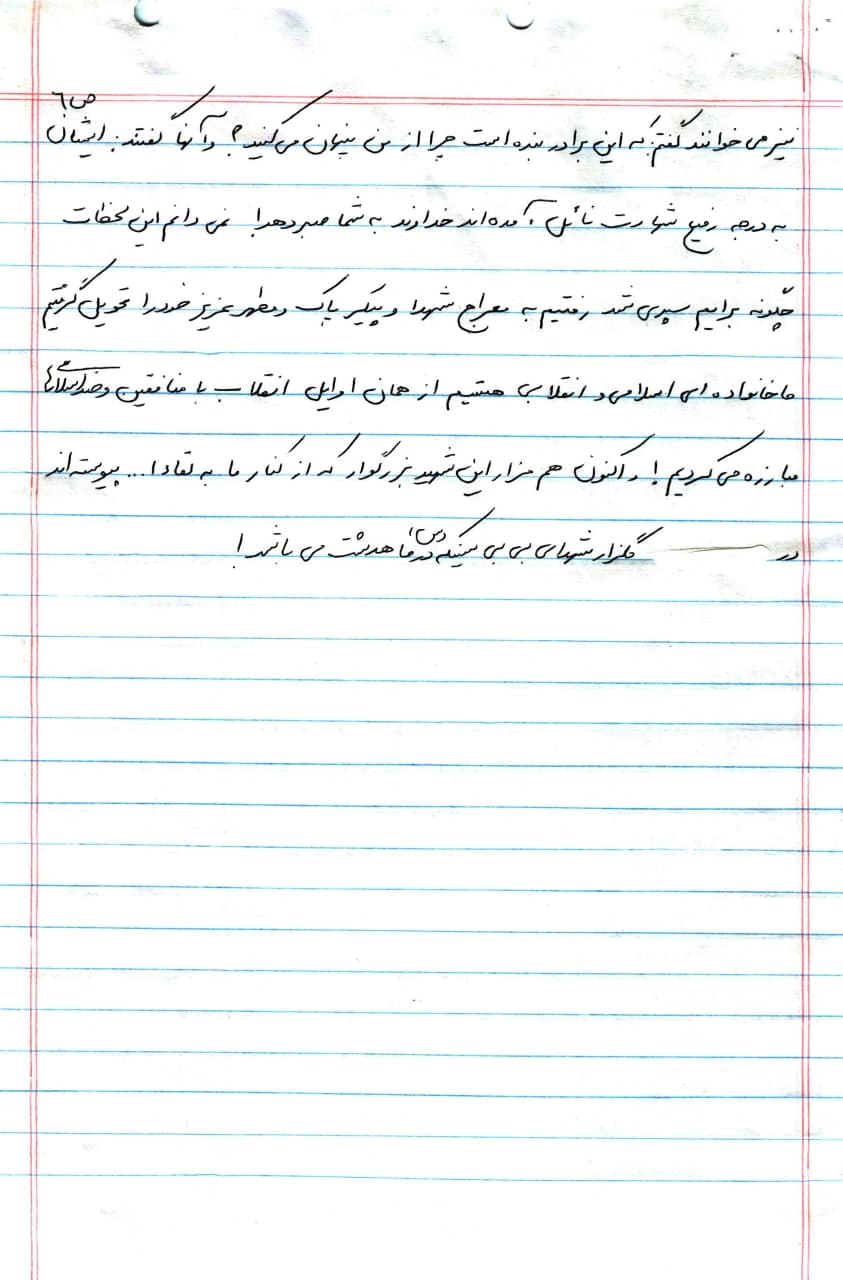 ص ٦
نیز می خوانند گفتم: که این برادر بنده است چرا از من پنهان می کنید؟ وآنها گفتند: ایشان
به درجه رفیع شهادت نائل آمده اند خداوند به شما صبر دهد! نمی دانم این لحظات
چگونه برایم سپری شد رفتیم به معراج شهدا و پیکر پاک و مطهر عزیز خود را تحویل گرفتیم
ما خانواده ای اسلامی و انقلابی هستیم از همان اوایل انقلاب با منافقین و ضد
مبارزه می کردیم! و اکنون هم مزار این شهید بزرگوار که از کنار ما به لقاء ا... پیوسته اند
در گلزار شهدای بی بی سکینه (س) در ماهدشت می باشد!